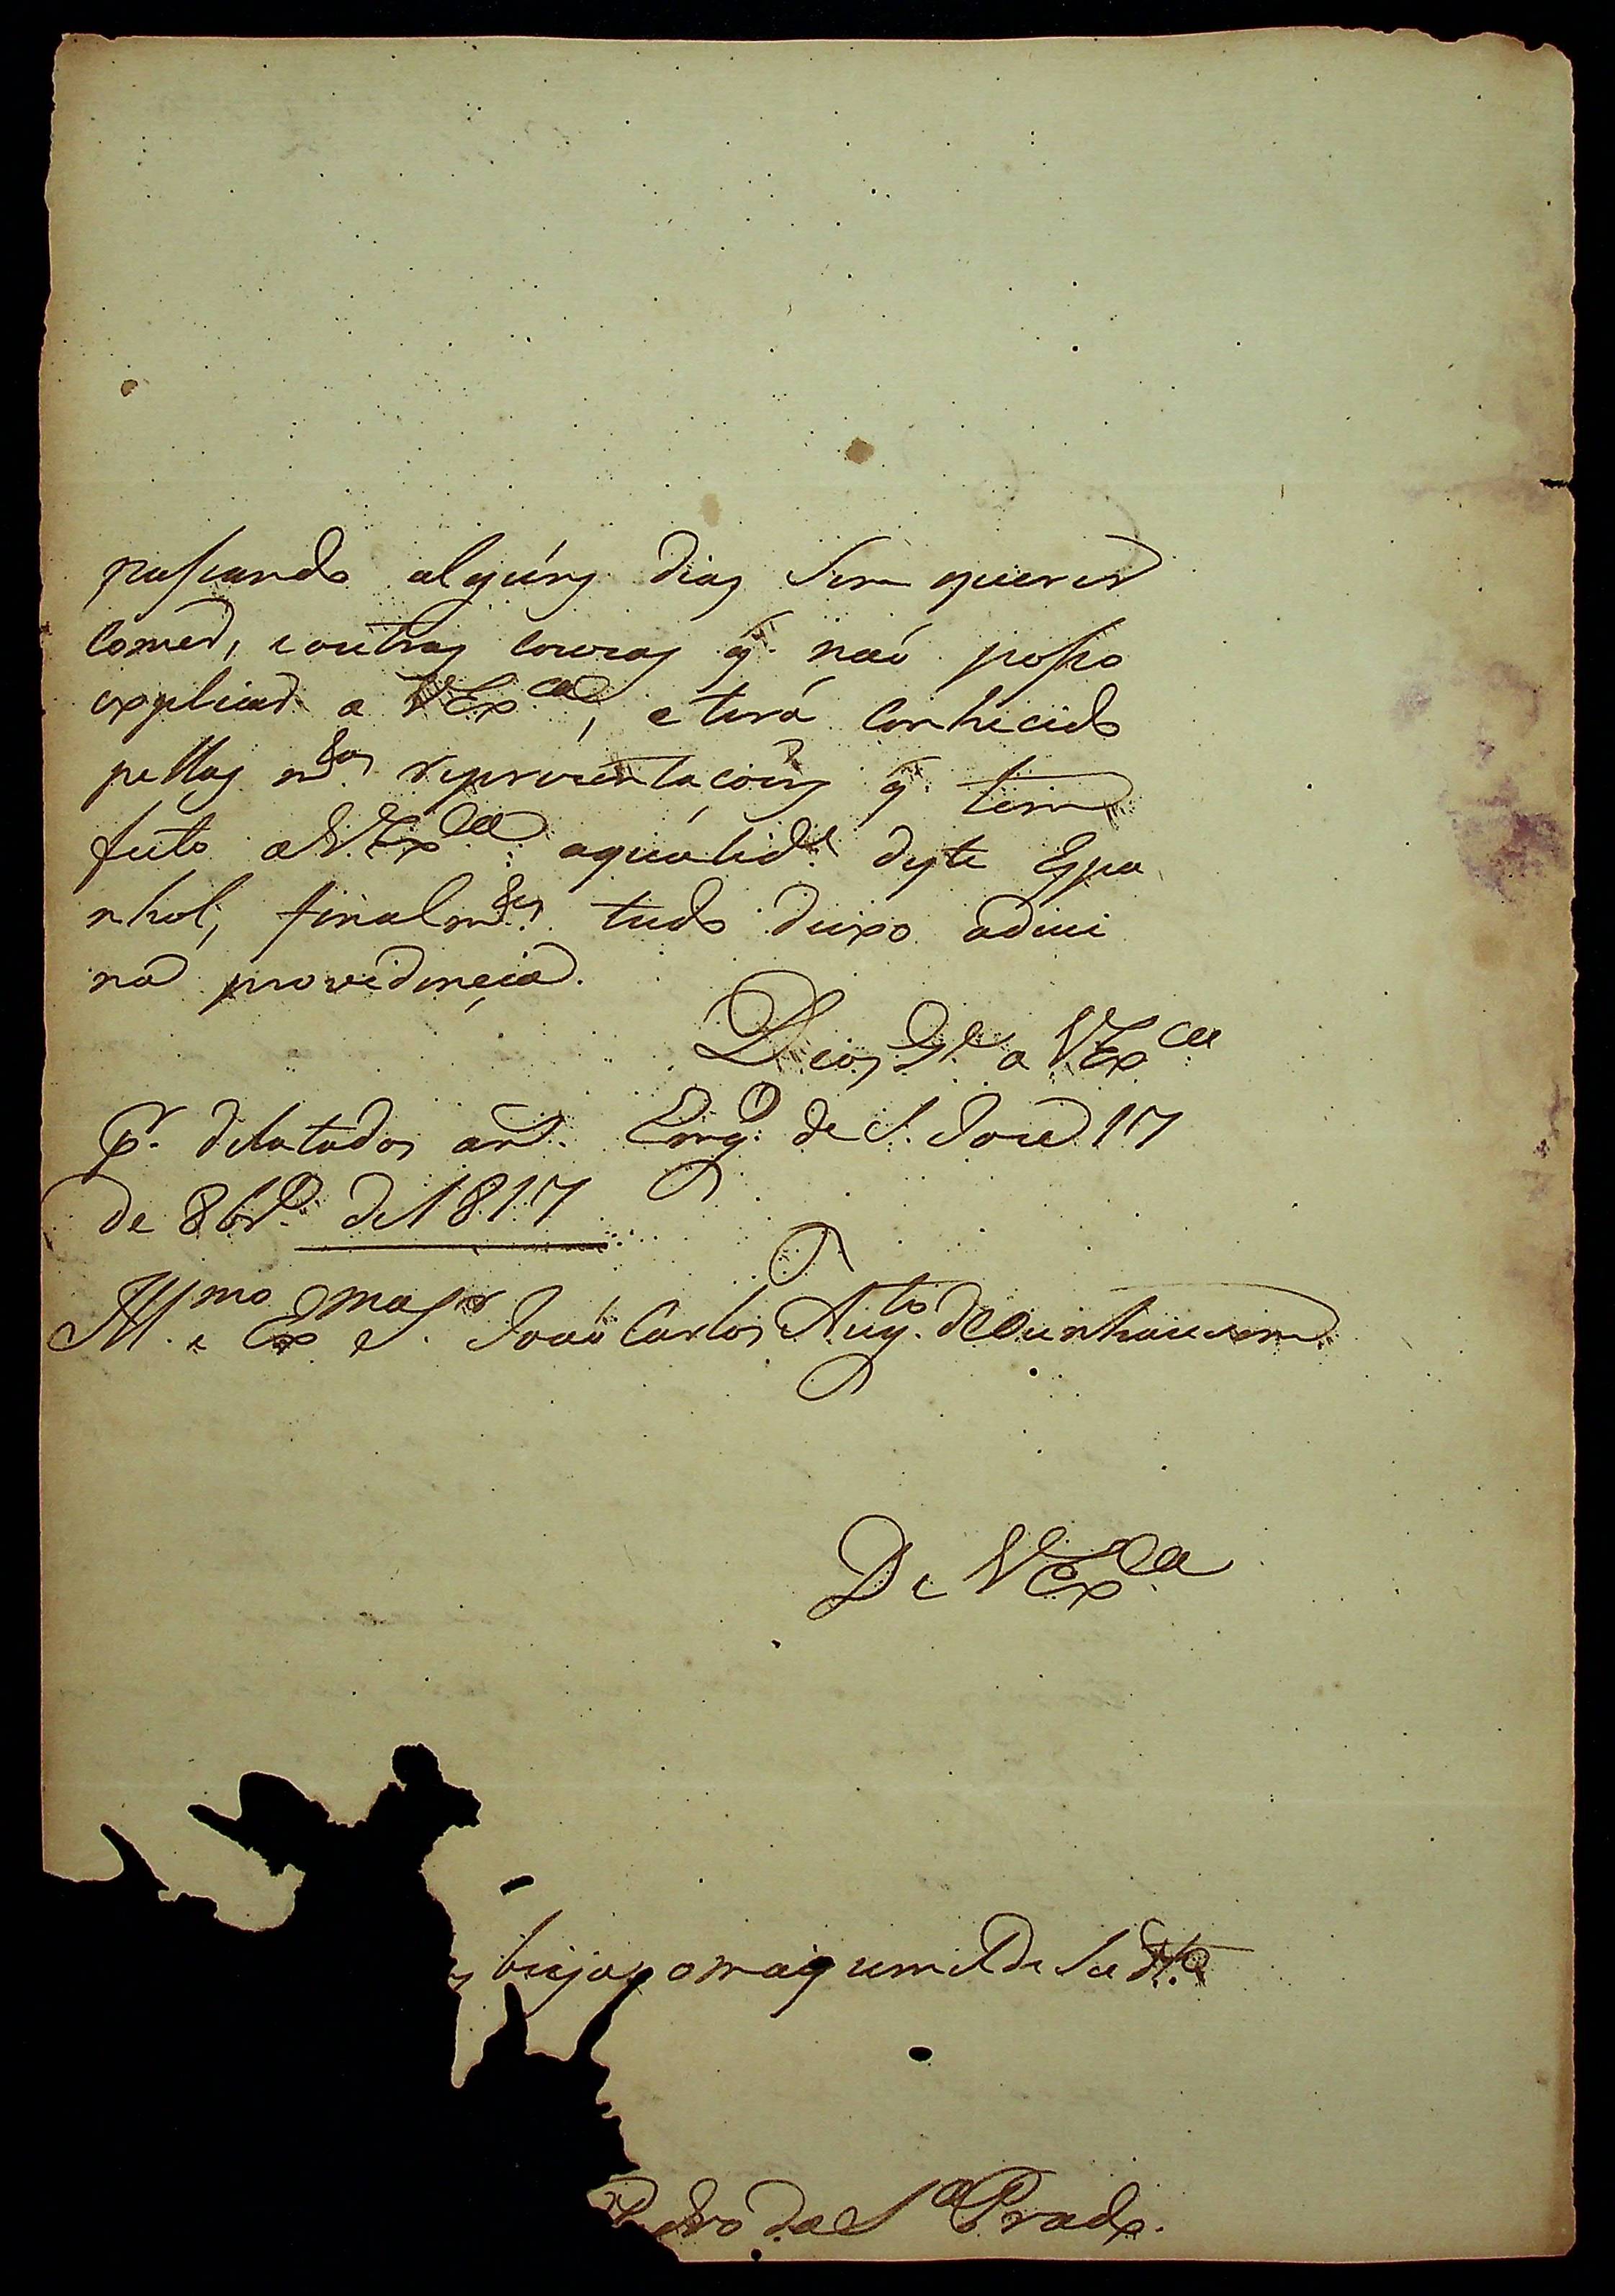 passando algúns dias Sem querer
comer, e outras couzas q. naó posso
explicar a VExca, e terá conhecido
pellas mtas reprezentacóins q. tem
feito a VExca aqualide. deste Espa
nhol, finalmte. tudo deixo adivi
na providençia.
Deos Gde a VExca
pr. dilatados ans. Emqo. de S. Joze 17
de 8bro. de 1817
Illmo e Exmo Sr. Joaó Carlos Augto. de Ounhauzem
De VExca
beija as maós umilde Sudto
Pedro da Sa Prado.